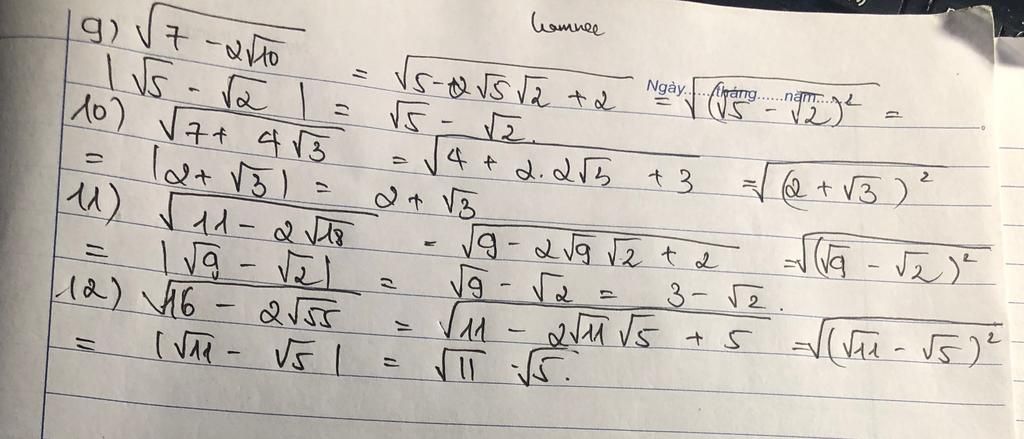 9) √(7 - 2√10) = √(5 - 2√5√2 + 2) = √((√5 - √2)²) =
Ngày......tháng......năm......
|√5 - √2| = √5 - √2.
10) √(7 + 4√3) = √(4 + 2.2√3 + 3) = √((2 + √3)²)
= |2 + √3| = 2 + √3
11) √(11 - 2√18) = √(9 - 2√9√2 + 2) = √((√9 - √2)²)
= |√9 - √2| = √9 - √2 = 3 - √2.
12) √(16 - 2√55) = √(11 - 2√11√5 + 5) = √((√11 - √5)²)
= |√11 - √5| = √11 - √5.